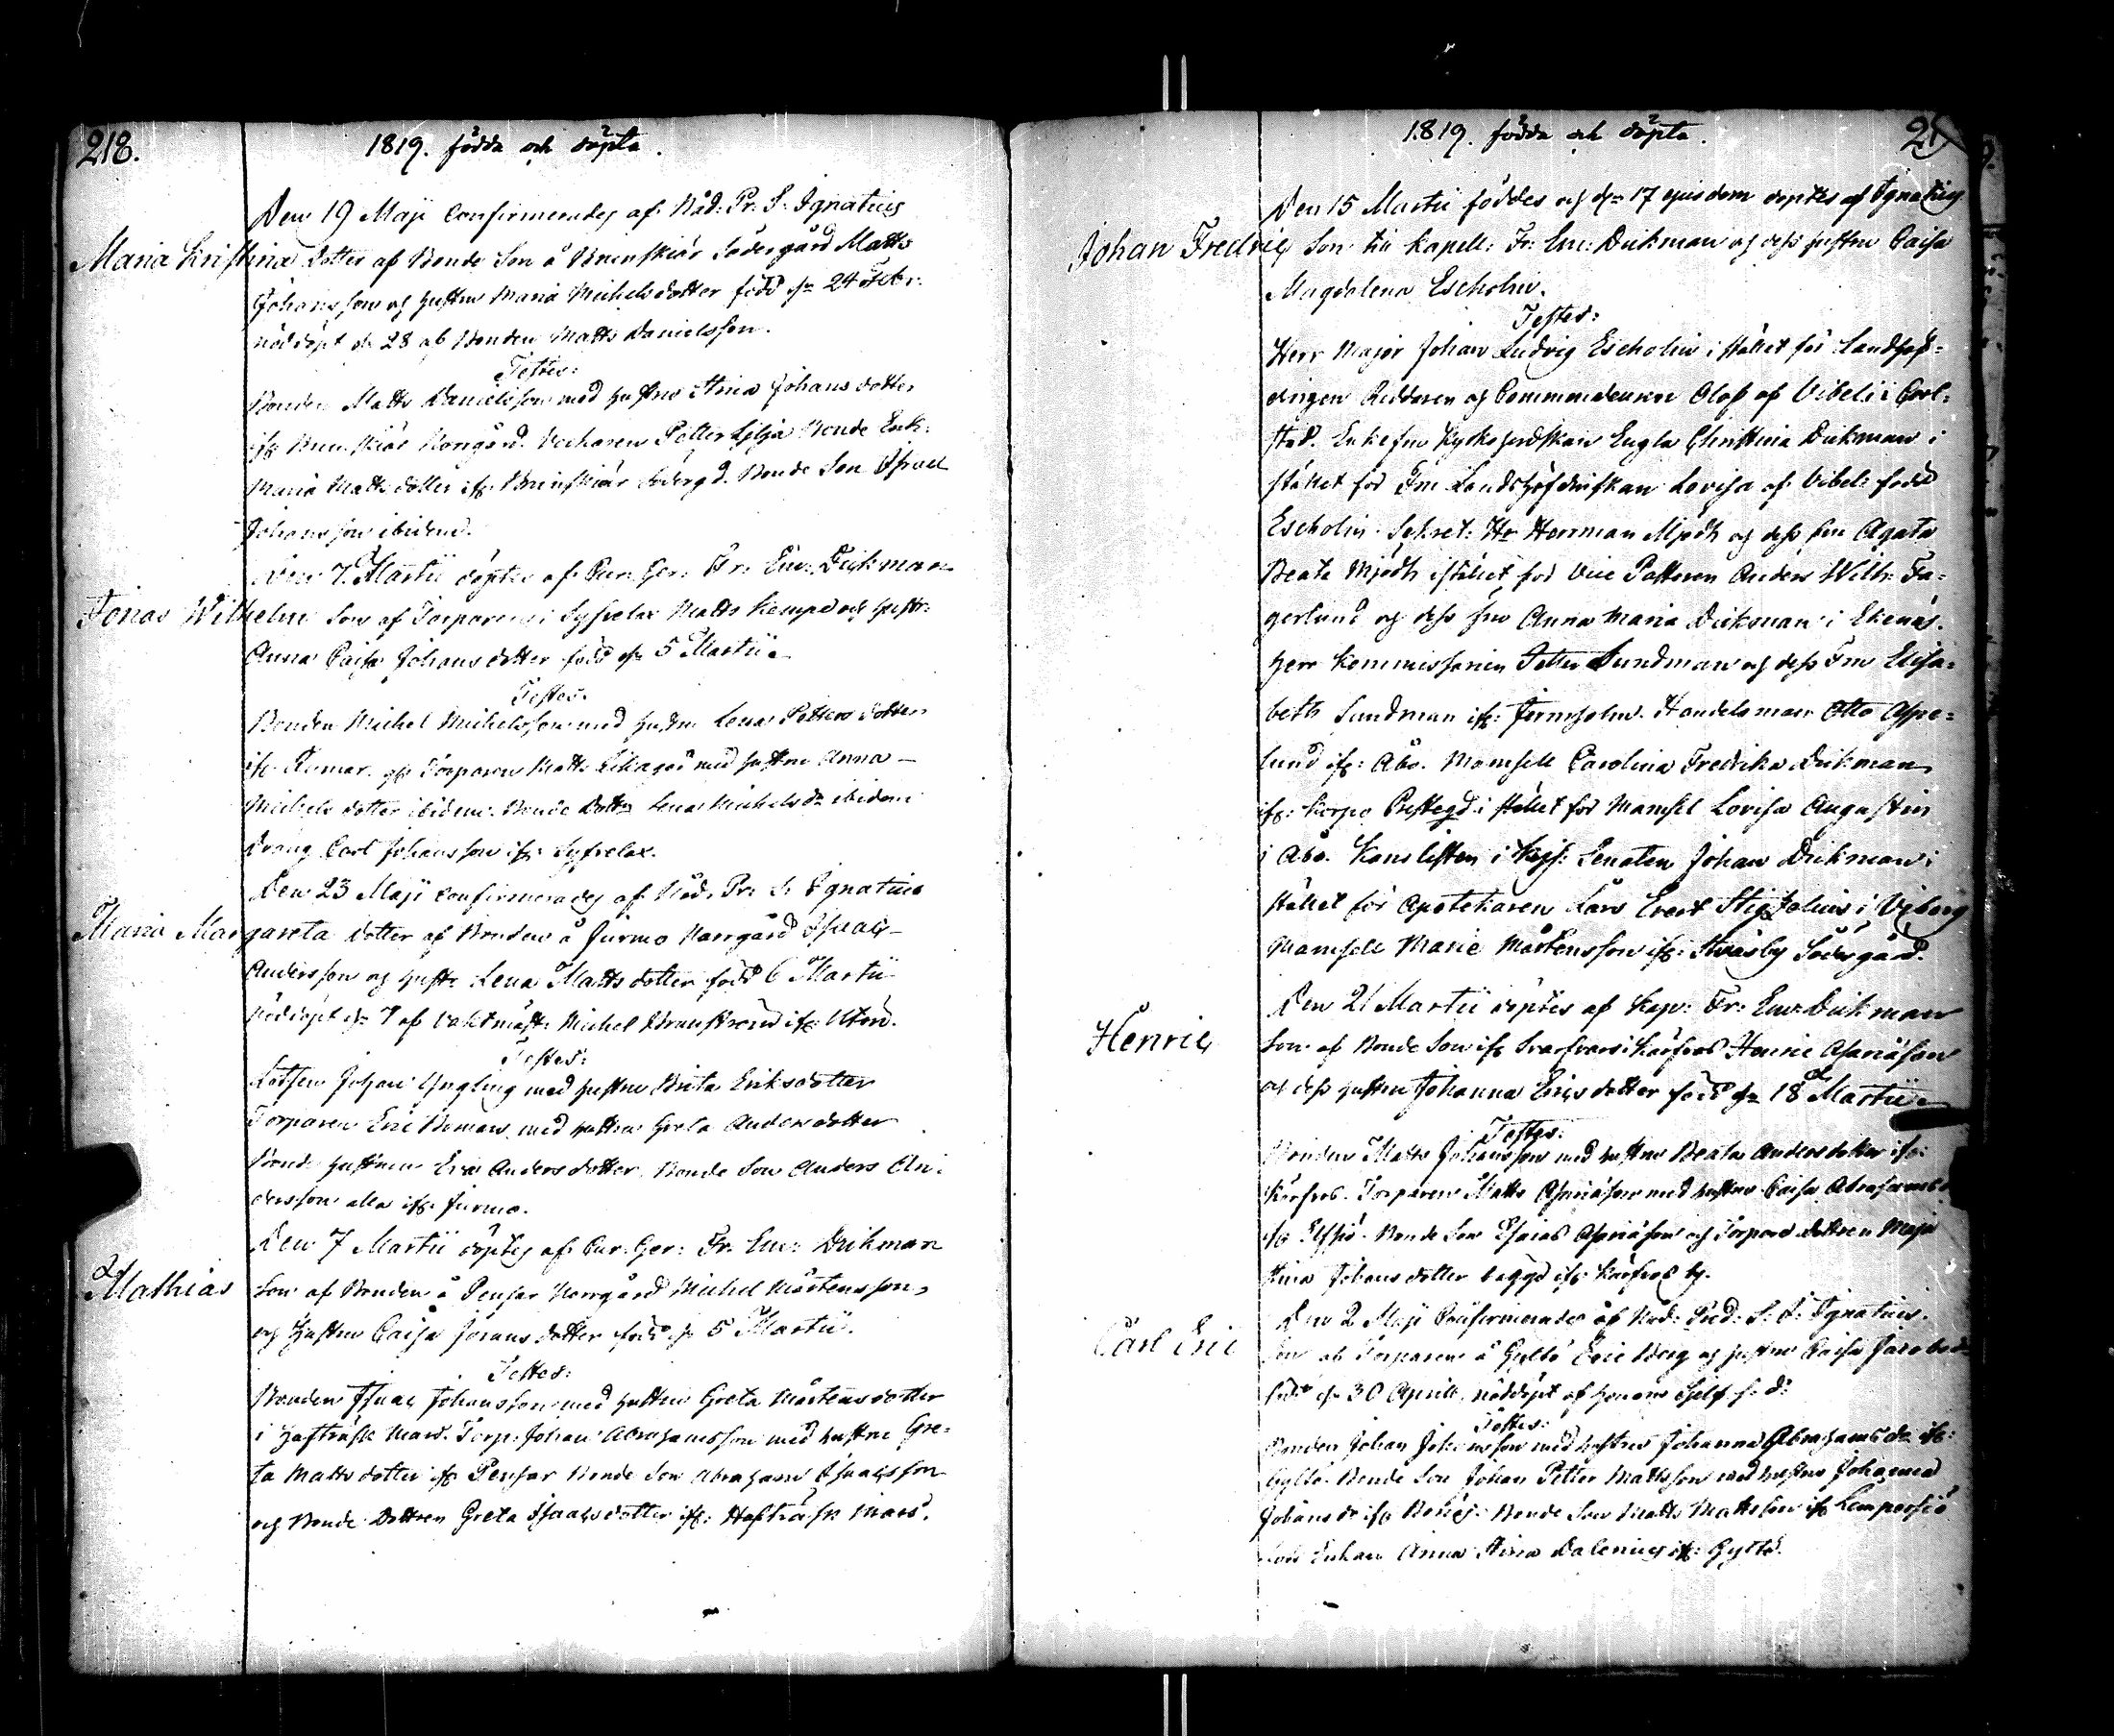 218.
1819. födda och döpta.
Den 19 Maji Confirmerades af Nåd: Pr: S: Ignatius
Maria Kristina dotter af Bonde Son å Brunskiär Södergård Matts
Johansson och hustru Maria Michelsdotter född dn 24 Febr:
nöddöpt d. 28 af Bonden Matts Danielsson.
Testes:
Bonden Matts Danielsson med hustru Stina Johansdotter
ifr. Brunskiär Norrgård. Petter Lilja Bonde Enk:
Maria Mattsdotter ifr. Brunskiär Södergd. Bonde Son Isaac
Johansson ibidem.
Den 7 Martii döptes af Cur: Ger: Fr: Em: Dickman
Jonas Wilhelm Son af Torparen i Matts Kempe och hustr:
Anna Caisa Johansdotter född dn 5 Martii
Testes.
Bonden Michel Michelsson med hustru Lena Pettersdotter
ifr. Rumar. Torparen Matts med hustru Anna
Michelsdotter ibidem. Bonde Dottr. Lena Michelsdr ibidem
Dräng Carl Johansson ifr.
Den 23 Maji confirmerades af Nåd. Pr: S: Ignatius
Maria Margareta dotter af Bonden å Jurmo Norrgård Isaac
Andersson och hustr: Lena Mattsdotter född 6 Martii
nöddöpt dn 7 af Michel ifr. Utön.
Testes:
Lotsen Johan Yngling med hustru Brita Eriksdotter
Torparen Eric Boman med hustru Greta Andersdotter
Bonde hustrun Eva Andersdotter. Bonde Son Anders An-
dersson alla ifr. Jurmo.
Den 7 Martii döptes af Cur: Ger: Fr. Em: Dickman
Mathias Son af Bonden å Pensar Norrgård Michel Mårtensson
och Hustru Caisa Joransdotter född dn 5 Martii.
Testes:
Bonden Isaac Johansson med hustru Greta Mårtensdotter
i Hafträsk Nars. Torp: Johan Abrahamsson med hustru Gre-
ta Mattsdotter ifr Pensar Bonde Son Abraham Isaacsson
och Bonde Dottren Greta Isaacsdotter ifr. Haftträsk
1819. födda och döpta.
Den 15 Martii föddes och dn 17 ejusdem döptes af Ignatius
Johan Fredric Son till Kapell: Fr: Em: Dickman och dess hustru Caisa
Magdalena Escholin.
Testes:
Herr Major Johan Ludvig Escholin i stället för Landshöf-
dingen Riddaren och Commendeuren Olof af Vibeli i Carl-
stad. Enkefru Engla Christina Dickman i
stället för Fru Landshöfdinskan Lovisa af Vibel: född
Escholin. Sekret: Hr Herrman Mjödh och dess fru Agata
Beata Mjödh i stället för Vice Pastoren Anders Wilh: Fa-
gerlund och dess fru Anna Maria Dickman i Ekenäs.
Herr Kommissarien Petter Sundman och dess Fru Elisa-
beth Sundman ifr: Jermoholm. Handelsman Otto Aspe-
lund ifr: Åbo. Mamsell Carolina Fredrika Dickman
ifr: Korpo Prestegd i stället för Mamsel Lovisa Augustin
i Åbo. Kanslisten i Kejs: Senaten Johan Dickman i
stället för Apotekaren Lars Evert Stigzelius i Viborg
Mamsell Marie Mårtensson ifr: Strasby Södergård.
Den 21 Martii döptes af Kap: Fr: Em: Dickman
Henric Son af Bonde Son ifr i Kärfvos Henric Asariason
och dess hustru Johanna Ericsdotter född dn 18 Martii
Testes:
Bonden Matts Johansson med hustru Beata Andersdotter ifr:
Kärfvos. Torparen Matts Asariason med hustru Caisa Abrahams
ifr Elfsiö. Bonde Son Esaias Asariason och Torpare dottren Maja
Stina Johansdotter begge ifr Kärfvos by.
Den 2 Maji Confirmerades af Nåd: Pred: S. I: Ignatius.
Carl Eric Son af Torparen å Gyltö Eric Berg och hustru Caisa Jacobsd.
född dn 30 Aprill. nöddöpt af honom sjelf s. d:
Testes:
Bonden Johan Johansson med hustru Johanna Abrahamsdr ifr:
Gyltö. Bonde Son Johan Petter Mattsson med hustru Johanna
Johansdr ifr Bonde Son Matts Mattsson ifr Lempersiö
Enkan Anna Stina Dalenius ifr: Gyltö.